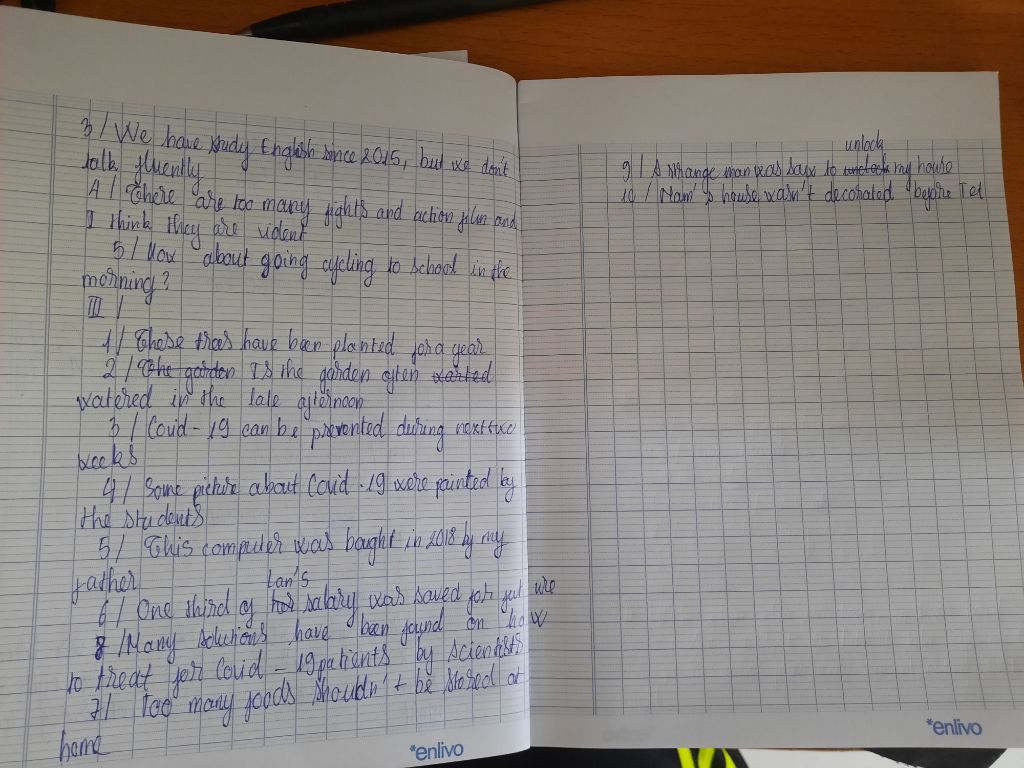 3/ We have study English since 2015, but we don't
talk fluently
4/ There are too many fights and action film and
I think they are violent
5/ How about going cycling to school in the
morning?
III/
1/ These trees have been planted for a year
2/ The garden Is the garden often warted
watered in the late afternoon
3/ Covid-19 can be prevented during next two
weeks
4/ Some picture about Covid-19 were painted by
the students
5/ This computer was bought in 2018 by my
father
Lan's
6/ One third of her salary was saved for future
8/ Many solutions have been found on how
to treat for Covid-19 patients by scientists
7/ Too many foods shouldn't be stored at
home
*enlivo
unlock
9/ A strange man was says to my house
10/ Nam's house wasn't decorated before Tet
*enlivo